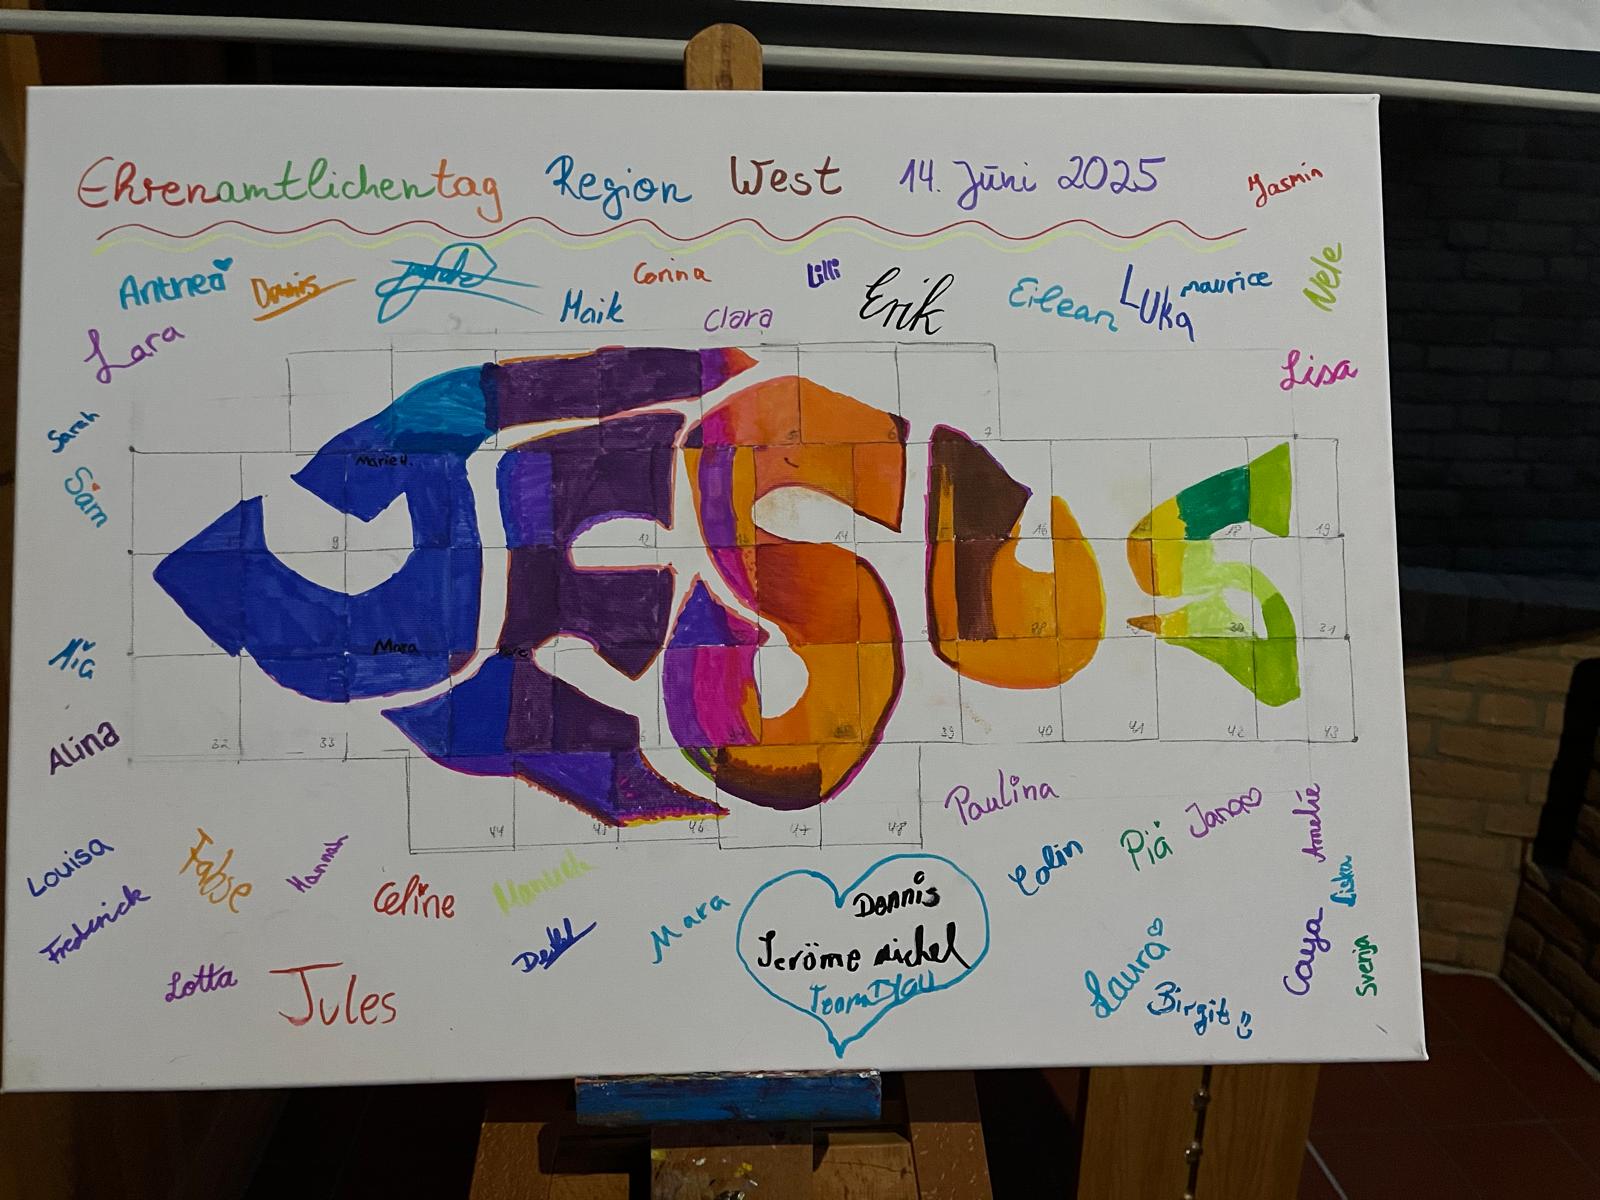 Ehrenamtlichentag Region West 14. Juni 2025
Jasmin
Anthea
Corina
Lilli
Erik
Eilean
Luka
maurice
Nele
Maik
Clara
Lara
Lisa
Sarah
Marie H.
Sam
JESUS
5
6
7
9
12
13
14
16
18
19
Mara
30
31
Alina
32
33
39
40
41
42
43
44
45
46
47
48
Paulina
Pia
Jana
Amelie
Colin
Louisa
Fabse
Hannah
Celine
Manuela
Frederick
Mara
Dennis
Jeröme michel
Team Blau
Liska
Caya
Svenja
Laura
Birgit
Lotta
Jules